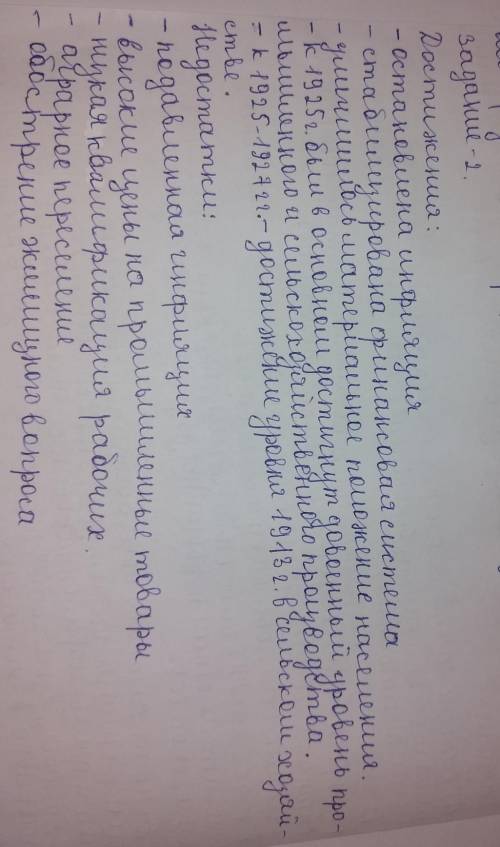 Задание-2.
Достижения:
- остановлена инфляция
- стабилизирована финансовая система
- улучшилось материальное положение населения.
- к 1925г. был в основном достигнут довоенный уровень про-
мышленного и сельскохозяйственного производства.
- к 1925-1927 гг. - достижение уровня 1913 г. в сельском хозяй-
стве.
Недостатки:
- подавленная инфляция
- высокие цены на промышленные товары
- низкая квалификация рабочих.
- аграрное переселение
- обострение жилищного вопроса